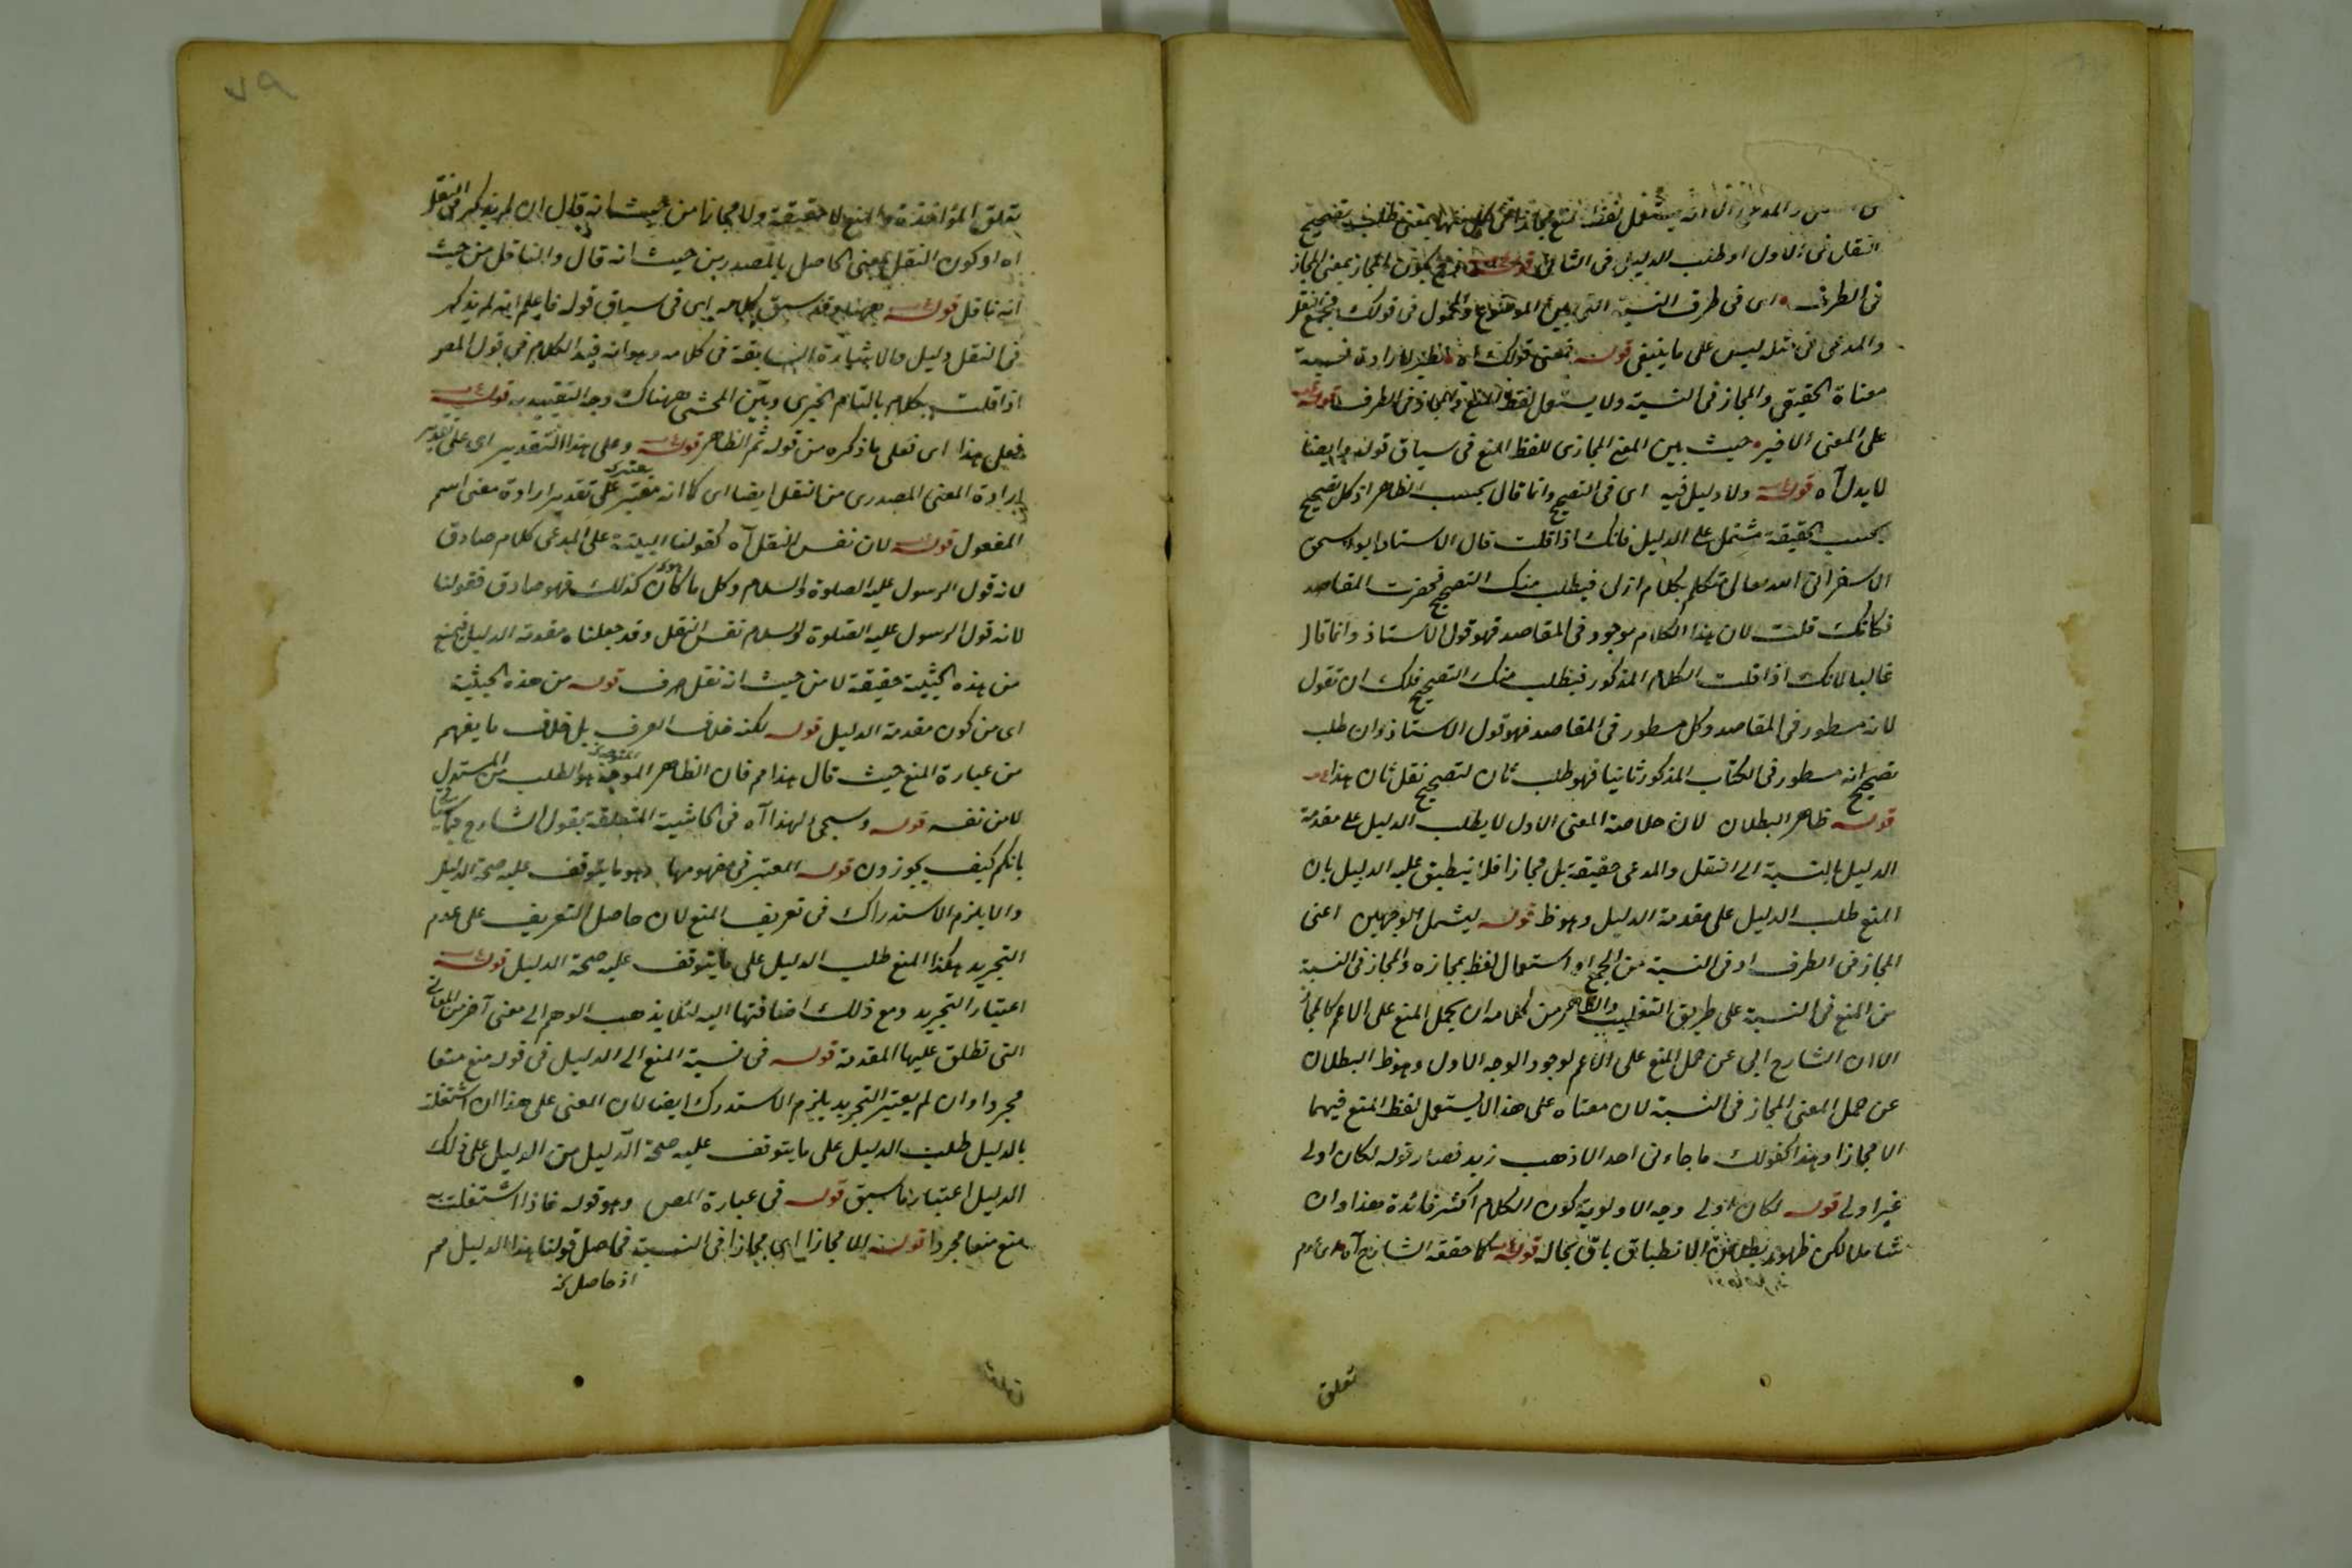 والمدعى الا انه يستعمل لفظ المنع مجازا فى كل منهما بمعنى طلب تصحيح
النقل فى الاول او طلب الدليل فى الثانى قوله يكون المجاز بمعنى المجاز
فى الطرف اى فى طرف النسبة التى بين الموضوع والمحمول فى قولك منع النقل
والمدعى فى مثله ليس على ما ينبغى قوله فمعنى قولك اه لارادة نسبة
معناه الحقيقى والمجاز فى النسبة ولا يستعمل لفظ المنع والمجاز فى الطرف قوله
على المعنى الاخير حيث بين المعنى المجازى للفظ المنع فى سياق قوله وايضا
لا يدل آه قوله ولا دليل فيه اى فى التصحيح وانما قال بحسب الظاهر اذ كل تصحيح
بحسب الحقيقة مشتمل على الدليل فانك اذا قلت قال الاستاذ ابو اسحق
الاسفرائى الله تعالى متكلم بكلام ازلى فيطلب منك التصحيح فحضرت المقاصد
فكانك قلت لان هذا الكلام موجود فى المقاصد فهو قول الاستاذ وانما قال
غالبا لانك اذا قلت الكلام المذكور فيطلب منك التصحيح فلك ان تقول
لانه مسطور فى المقاصد وكل مسطور فى المقاصد فهو قول الاستاذ وان طلب
تصحيح انه مسطور فى الكتاب المذكور ثانيا فهو طلب ثان لتصحيح نقل ثان هذا
قوله ظاهر البطلان لان خلاصة المعنى الاول لا يطلب الدليل على مقدمة
الدليل بالنسبة الى النقل والمدعى حقيقة بل مجازا فلا ينطبق عليه الدليل بان
المنع طلب الدليل على مقدمة الدليل وهو ظ قوله ليشمل الوجهين اعنى
المجاز فى الطرف او فى النسبة من الجمع او استعمال لفظ بمجازه والمجاز فى النسبة
من المنع فى النسبة على طريق التغليب والظاهر من كلامه ان يحمل المنع على الاعم كالمجاز
الا ان الشارح ابى عن حمل المنع على الاعم لوجود الوجه الاول وهو ظ البطلان
عن حمل المعنى المجاز فى النسبة لان معناه على هذا لا يستعمل لفظ المنع فيهما
الا مجازا وهذا كقولك ما جاءنى احد الا ذهب زيد فصار قوله لكان اولى
غير اولى قوله لكان اولى وجه الاولوية كون الكلام اكثر فائدة هذا وان
شاملا لكن ظهور بطلان الانطباق باق بحاله قوله كما حققه الشارح آه اى عدم
تعلق
٧٩
تعلق المؤاخذة والمنع لا حقيقة ولا مجازا من حيث انه قال ان لم يذكر فى النقل
اه او كون النقل بمعنى الحاصل بالمصدر من حيث انه قال والناقل من حيث
انه ناقل قوله ههنا وقد سبق كلامه اى فى سياق قوله فاعلم انه لم يذكر
فى النقل دليل والاشارة السابقة فى كلامه وهو انه قيد الكلام فى قول المص
اذا قلت بكلام بالتام الخبرى وبيّن المحشى ههناك وجه التقييد به قوله
فعلى هذا اى فعلى ما ذكره من قوله ثم الظاهر قوله وعلى هذا التقدير اى على تقدير
ارادة المعنى المصدرى من النقل ايضا اى كما انه معتبر على تقدير ارادة معنى اسم
المفعول قوله لان نفس النقل آه كقولنا البينة على المدعى كلام صادق
لانه قول الرسول عليه الصلوة والسلام وكل ما كان كذلك فهو صادق فقولنا
لانه قول الرسول عليه الصلوة والسلام نفس النقل وقد جعلناه مقدمة الدليل فيمنع
من هذه الحيثية حقيقة لا من حيث انه نقل صرف قوله من هذه الحيثية
اى من كون مقدمة الدليل قوله لكنه خلاف العرف بل خلاف ما يفهم
من عبارة المنع حيث قال هذا مم فان الظاهر الموجه هو الطلب من المستدل
لا من نفسه قوله وسيجئ لهذا آه فى الحاشية المتعلقة بقول الشارح
بانكم كيف يجوزون قوله المعتبر فى مفهومها وهو ما يتوقف عليه صحة الدليل
والا يلزم الاستدراك فى تعريف المنع لان حاصل التعريف على عدم
التجريد هكذا المنع طلب الدليل على ما يتوقف عليه صحة الدليل قوله
اعتبار التجريد ومع ذلك اضافتها اليه لئلا يذهب الوهم الى معنى آخر من المعانى
التى تطلق عليها المقدمة قوله فى نسبة المنع الى الدليل فى قوله منع منعا
مجردا وان لم يعتبر التجريد يلزم الاستدراك ايضا لان المعنى على هذا ان اشتغلت
بالدليل طلب الدليل على ما يتوقف عليه صحة الدليل من الدليل على ذلك
الدليل اعتبار ما سبق قوله فى عبارة المص وهو قوله فاذا اشتغلت به
منع منعا مجردا قوله الا مجازا اى مجازا فى النسبة فحاصل قولنا هذا الدليل مم
اذ حاصل